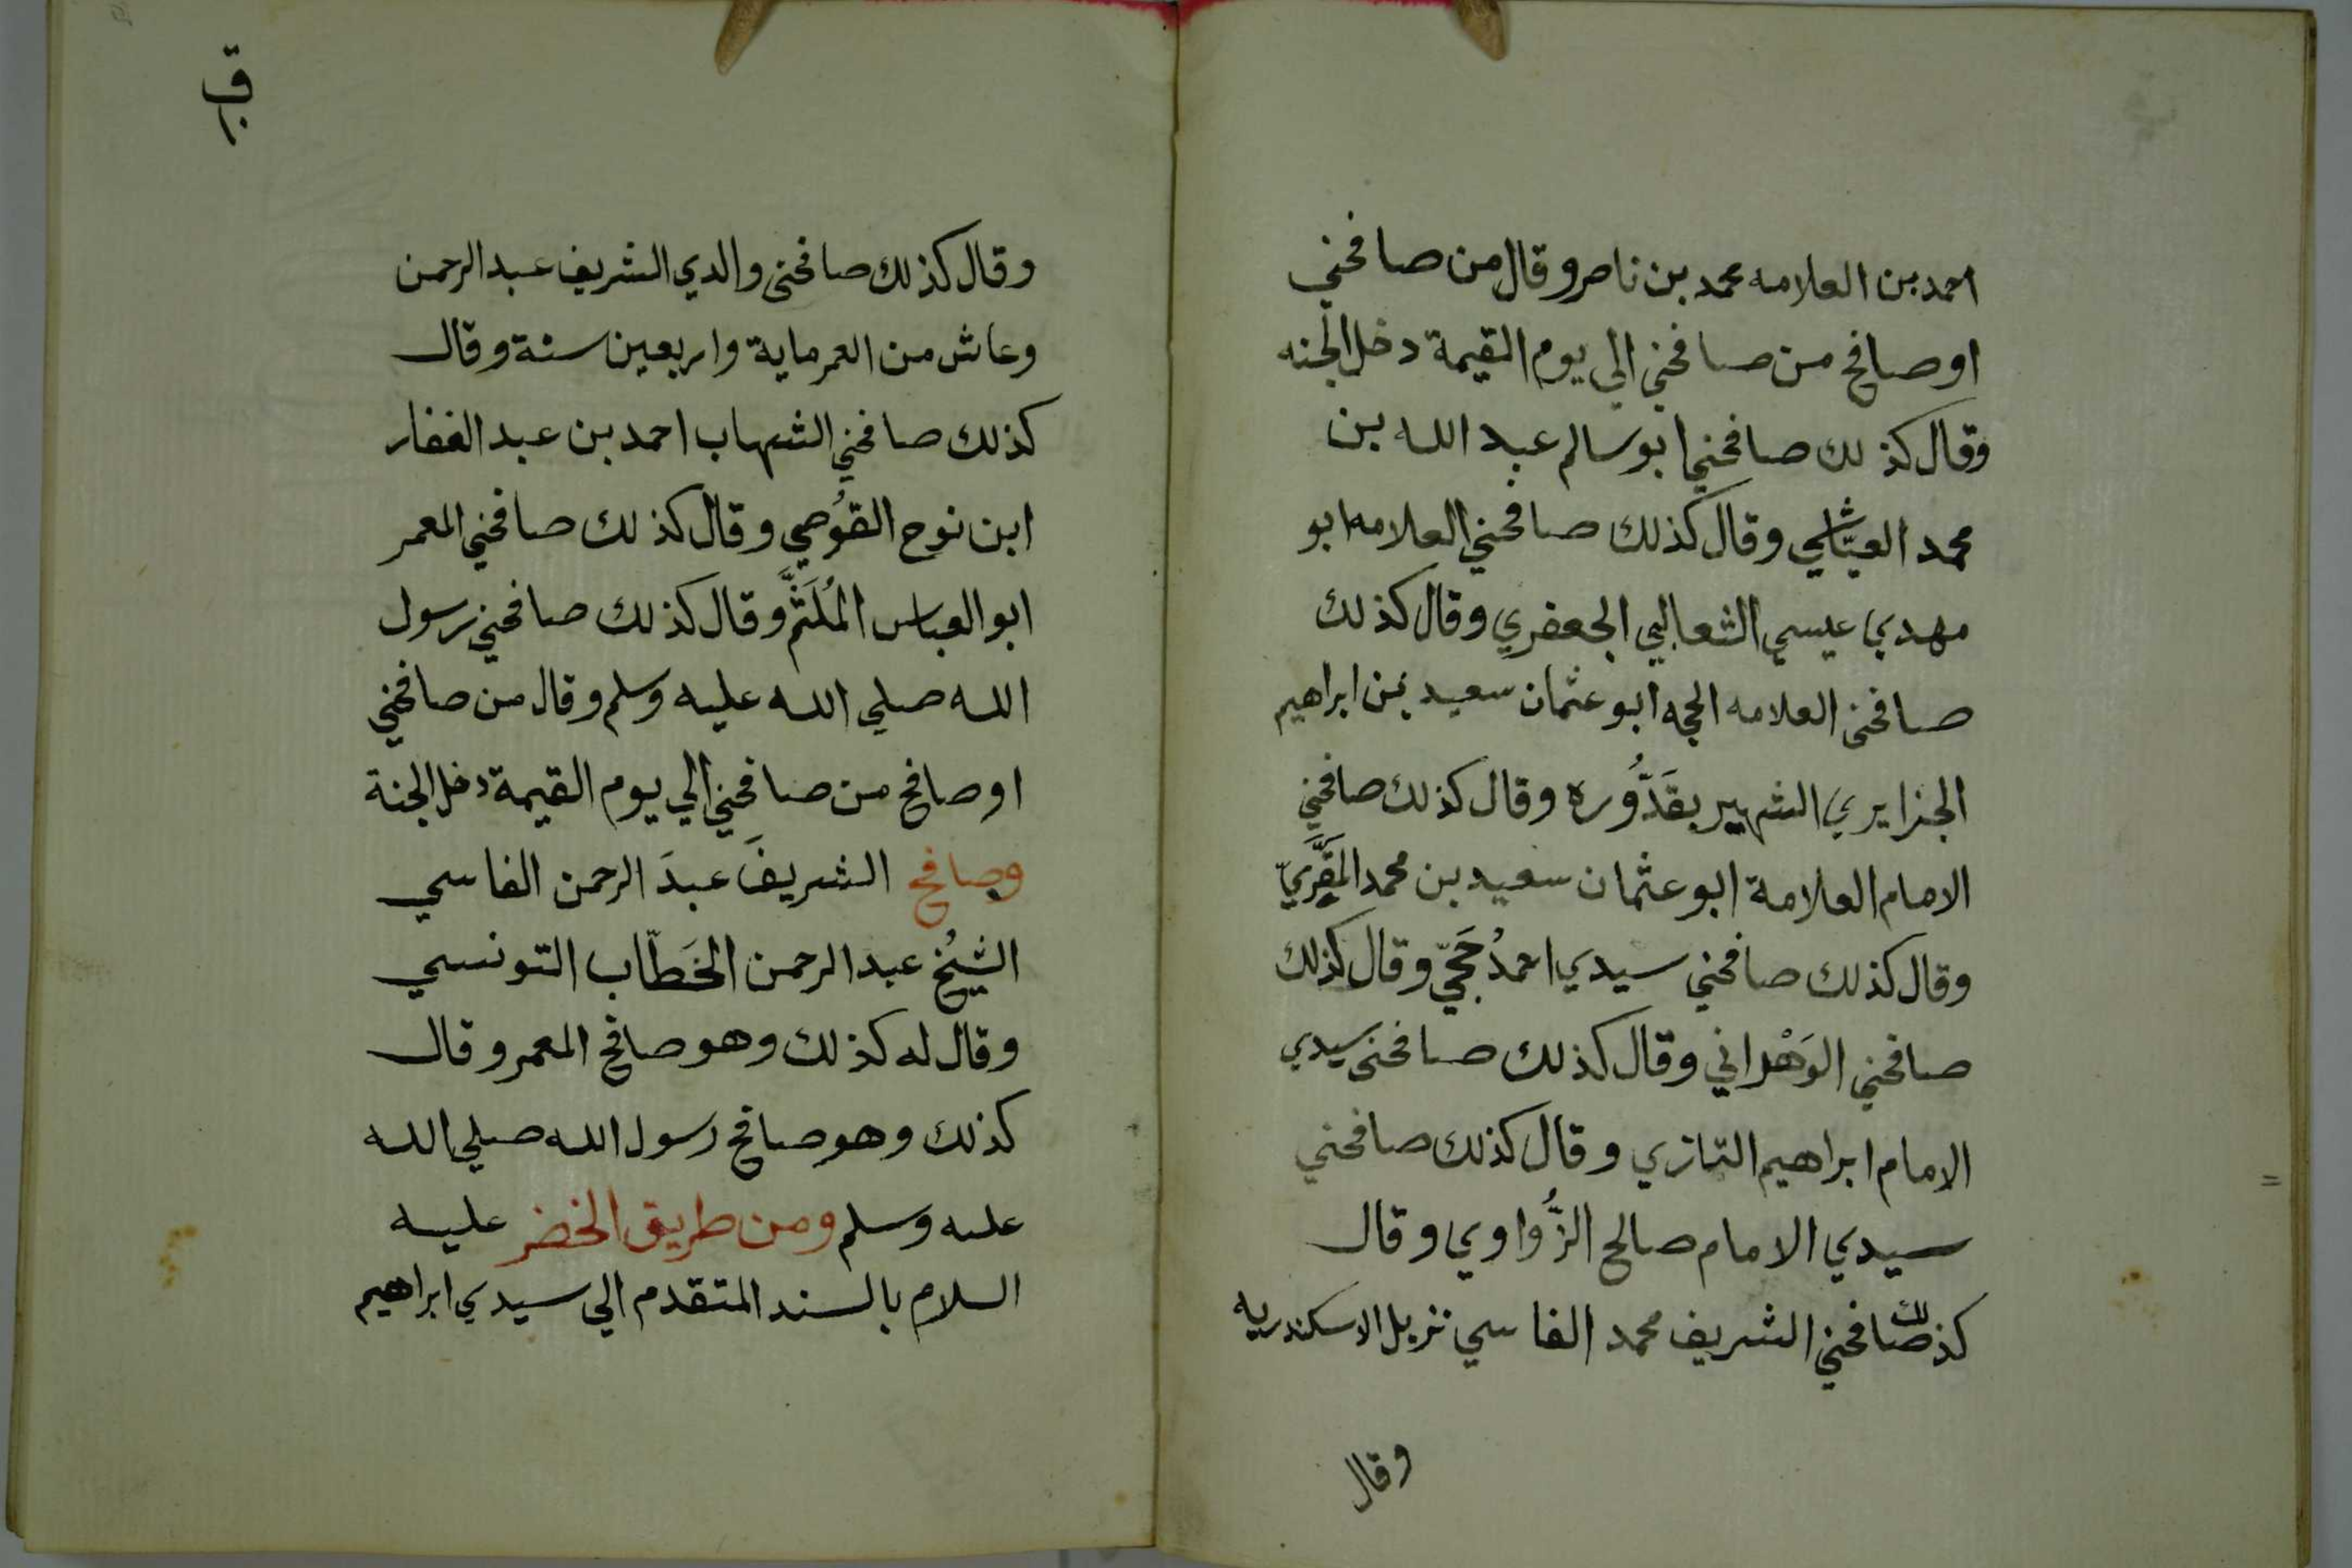 احمد بن العلامه محمد بن ناصر وقال من صافحني
او صافح من صافحني الي يوم القيمة دخل الجنه
وقال كذلك صافحني ابو سالم عبد الله بن
محمد العيّاشي وقال كذلك صافحني العلامه ابو
مهدي عيسي الثعالبي الجعفري وقال كذلك
صافحني العلامه الحجه ابو عثمان سعيد بن ابراهيم
الجزايري الشهير بقَدُّوره وقال كذلك صافحني
الامام العلامة ابو عثمان سعيد بن محمد المَقَّرِيّ
وقال كذلك صافحني سيدي احمدُ حَجّي وقال كذلك
صافحني الوَهْراني وقال كذلك صافحني سيدي
الامام ابراهيم التازي وقال كذلك صافحني
سيدي الامام صالح الزُّواوي وقال
كذلك صافحني الشريف محمد الفاسي نزيل الاسكندريه
وقال
ق
وقال كذلك صافحني والدي الشريف عبد الرحمن
وعاش من العمر ماية واربعين سنة وقال
كذلك صافحني الشهاب احمد بن عبد الغفار
ابن نوح القُوصي وقال كذلك صافحني المعمر
ابو العباس المُلَثَّم وقال كذلك صافحني رسول
الله صلي الله عليه وسلم وقال من صافحني
او صافح من صافحني الي يوم القيمة دخل الجنة
وصافح الشريفَ عبدَ الرحمن الفاسي
الشيخُ عبد الرحمن الخَطّاب التونسي
وقال له كذلك وهو صافح المعمر وقال
كذلك وهو صافح رسول الله صلي الله
عليه وسلم ومن طريق الخضر عليه
السلام بالسند المتقدم الي سيدي ابراهيم